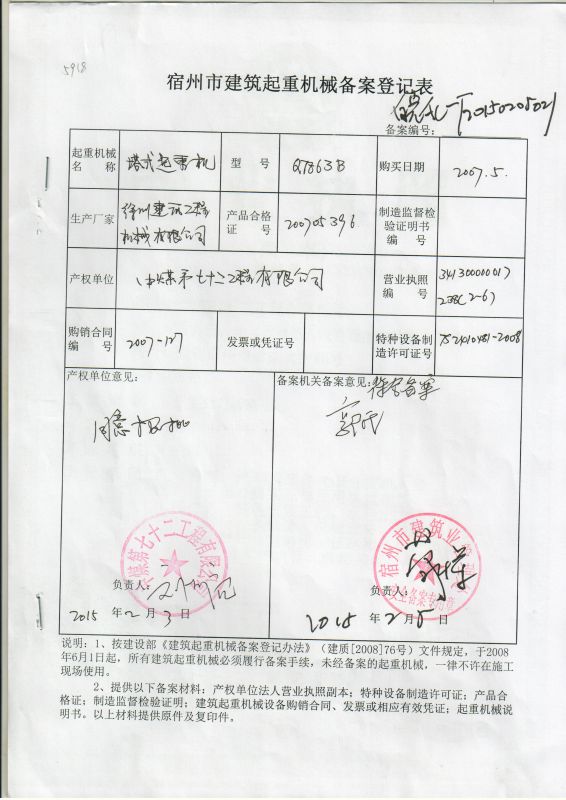 5918
宿州市建筑起重机械备案登记表
备案编号：皖AL-T20150205021
起重机械名 称 塔式起重机 型 号 QTZ63B 购买日期 2007.5.
生产厂家 徐州建筑工程机械有限公司 产品合格证 号 200705396 制造监督检验证明书编 号
产权单位 中煤第七十二工程有限公司 营业执照编 号
购销合同编 号 2007-127 发票或凭证号 特种设备制造许可证号 TS2410481-2008
产权单位意见：
备案机关备案意见：符合备案
中煤第七十二工程有限公司
宿州市建筑业
负责人：
负责人：
2015 年 2 月 3 日
2015 年 2 月 5 日
说明：1、按建设部《建筑起重机械备案登记办法》（建质[2008]76号）文件规定，于2008
年6月1日起，所有建筑起重机械必须履行备案手续，未经备案的起重机械，一律不许在施工
现场使用。
2、提供以下备案材料：产权单位法人营业执照副本；特种设备制造许可证；产品合
格证；制造监督检验证明；建筑起重机械设备购销合同、发票或相应有效凭证；起重机械说
明书。以上材料提供原件及复印件。